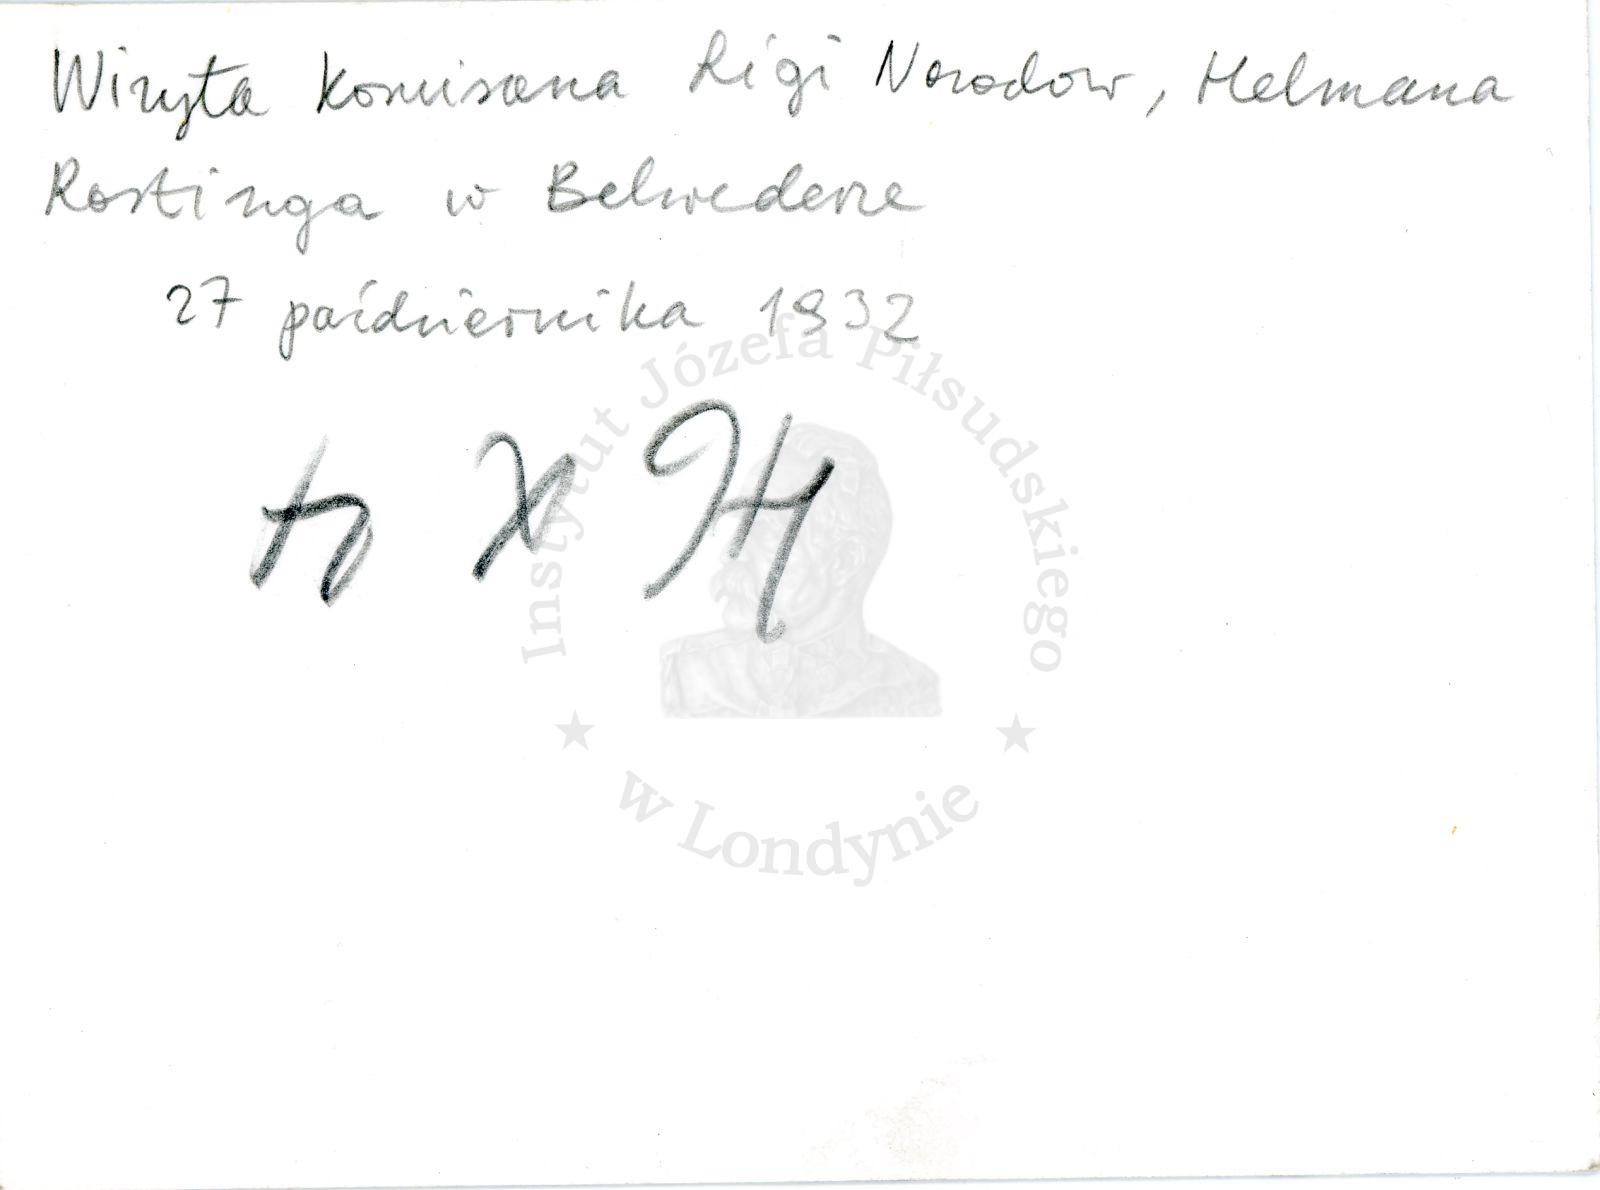 Wizyta Komisarza Ligi Narodów, Helmana
Rostinga w Belwederze
27 października 1932
Instytut Józefa Piłsudskiego
w Londynie